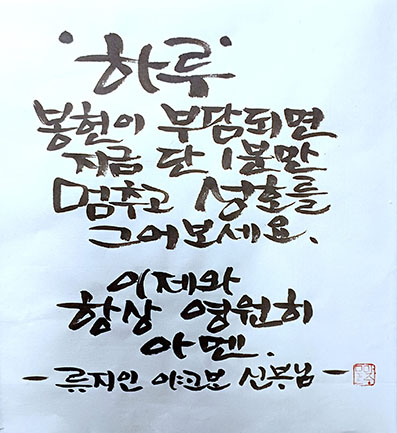 '하루'
봉헌이 부담되면
지금 단 1분만
멈추고 성호를
그어보세요.
이제와
항상 영원히
아멘.
- 류지인 야고보 신부님 -